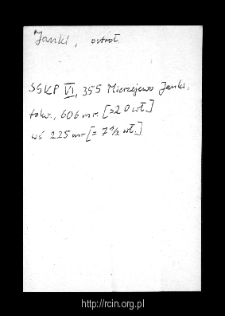 Janki, ostroł
SGKP VI, 355 Mierzejewo Janki,
folw., 606 mr [= 20 wł.]
wś 225 mr [= 7 ½ wł.]
http://rcin.org.pl